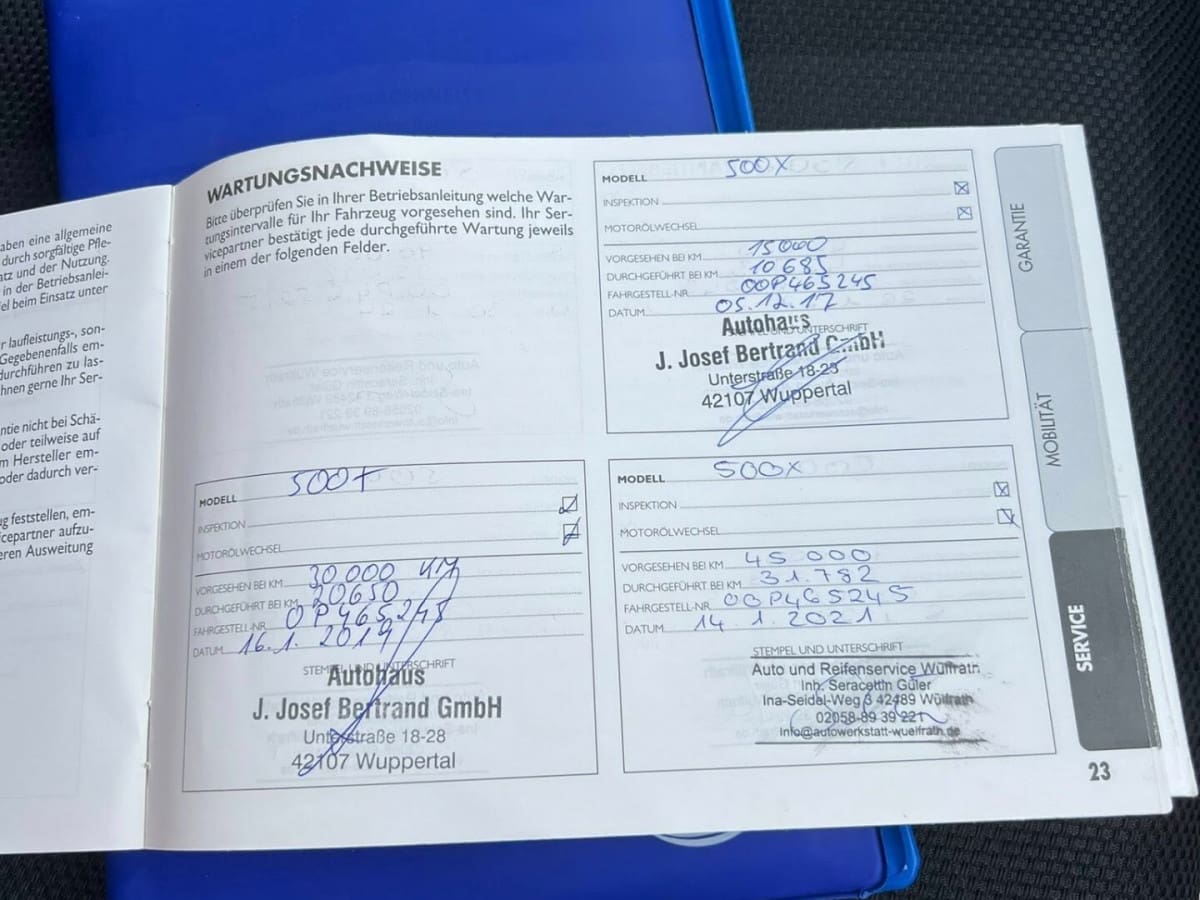 aben eine allgemeine
durch sorgfältige Pfle-
atz und der Nutzung.
in der Betriebsanlei-
el beim Einsatz unter
r laufleistungs-, son-
Gegebenenfalls em-
durchführen zu las-
hnen gerne Ihr Ser-
ntie nicht bei Schä-
oder teilweise auf
m Hersteller em-
oder dadurch ver-
g feststellen, em-
cepartner aufzu-
eren Ausweitung
WARTUNGSNACHWEISE
Bitte überprüfen Sie in Ihrer Betriebsanleitung welche War-
tungsintervalle für Ihr Fahrzeug vorgesehen sind. Ihr Ser-
vicepartner bestätigt jede durchgeführte Wartung jeweils
in einem der folgenden Felder.
MODELL 500X
INSPEKTION
MOTORÖLWECHSEL
VORGESEHEN BEI KM 15000
DURCHGEFÜHRT BEI KM 10685
FAHRGESTELL-NR. 00P465245
DATUM 05.12.17
STEMPEL UND UNTERSCHRIFT
Autohaus
J. Josef Bertrand GmbH
Unterstraße 18-23
42107 Wuppertal
MODELL 500X
INSPEKTION
MOTORÖLWECHSEL
VORGESEHEN BEI KM 30000 KM
DURCHGEFÜHRT BEI KM 20650
FAHRGESTELL-NR. 0P465245
DATUM 16.1.2019
STEMPEL UND UNTERSCHRIFT
Autohaus
J. Josef Bertrand GmbH
Unterstraße 18-28
42107 Wuppertal
MODELL 500X
INSPEKTION
MOTORÖLWECHSEL
VORGESEHEN BEI KM 45 000
DURCHGEFÜHRT BEI KM 31.782
FAHRGESTELL-NR. 00P465245
DATUM 14.1.2021
STEMPEL UND UNTERSCHRIFT
Auto und Reifenservice Wülfrath
Inh. Seracettin Güler
Ina-Seidel-Weg 3 42489 Wülfrath
02058-89 39 221
Info@autowerkstatt-wuelfrath.de
GARANTIE
MOBILITÄT
SERVICE
23